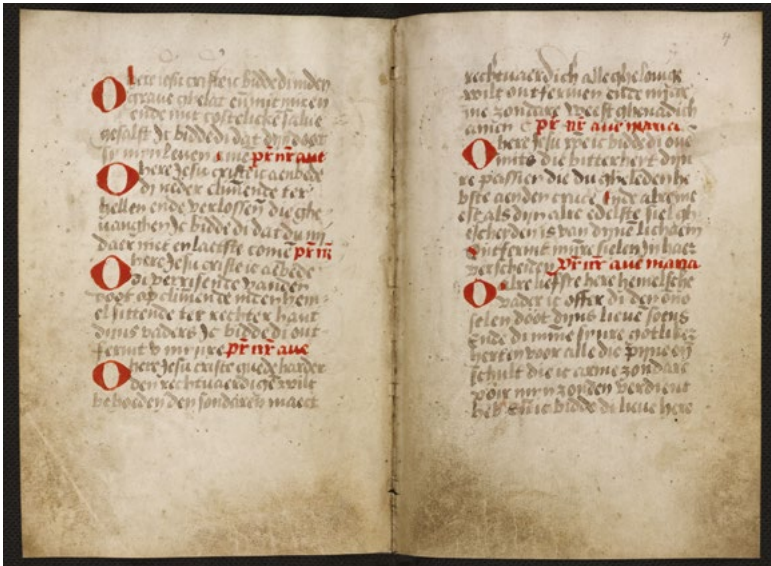 O here ihesu criste ic bidde di inden
grave ghelat en mit mirren
ende mit costelicke salve
gesalft Ic bidde di dat dijn doot
sy mijn leven pr nr ave
O here Jesu criste ic aenbede
di neder climende ter
hellen ende verlossen die ghe
vanghen Ic bidde di dat du mi
daer niet en laetste comen pr nr
O here Jesu criste ic aebede
di verrisende vanden
doot op climende inten hem
el sittende ter rechter hant
dijns vaders Ic bidde di ont
fermt pr nr ave
O here Jesu criste guede harder
den rechtvaerdigen wilt
behoeden den sondaren maect
4
rechtvaerdich alle ghelovige
wilt ontfermen ende mijre
me zondare weest ghenadich
amen pr nr ave maria
O here Jesu ic bidde di ove
mits die bitterheit dijn
re passien die du gheleden he
bste aenden cruce Ende alreme
est als dijn alre edelste siel gh
escheiden is van dijnen lichaem
Ontfermt mijre sielen in haer
verscheiden pr nr ave maria
O alre liefste here hemelsche
vader ic offer di den ono
selen doot dijns lieve soens
Ende die minne sijnre gotliker
herten voor alle die pijne en
schult die ic arme zondare
voir mijn zonden verdient
heb ic bidde di lieve here